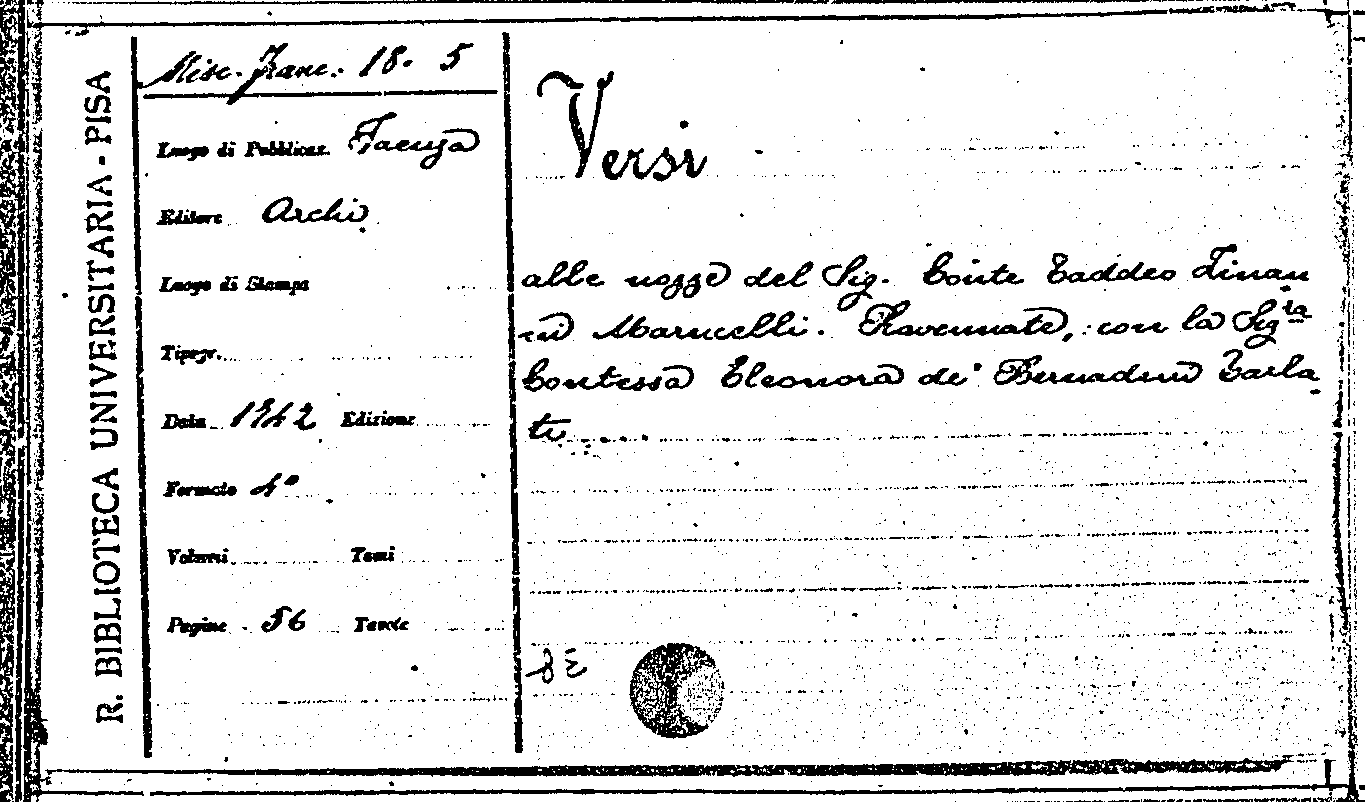 R. BIBLIOTECA UNIVERSITARIA - PISA
Misc. Franc. 18. 5
Luogo di Pubblicaz. Faenza
Editore Archi
Luogo di Stampa
Tipogr.
Data 1742 Edizione
Formato 4º
Volumi Tomi
Pagine 56 Tavole
Versi
alle nozze del Sig. Conte Taddeo
Marucelli. Ravennate, con la Sigra
Contessa Eleonora de' Bernardini Tarla
ti